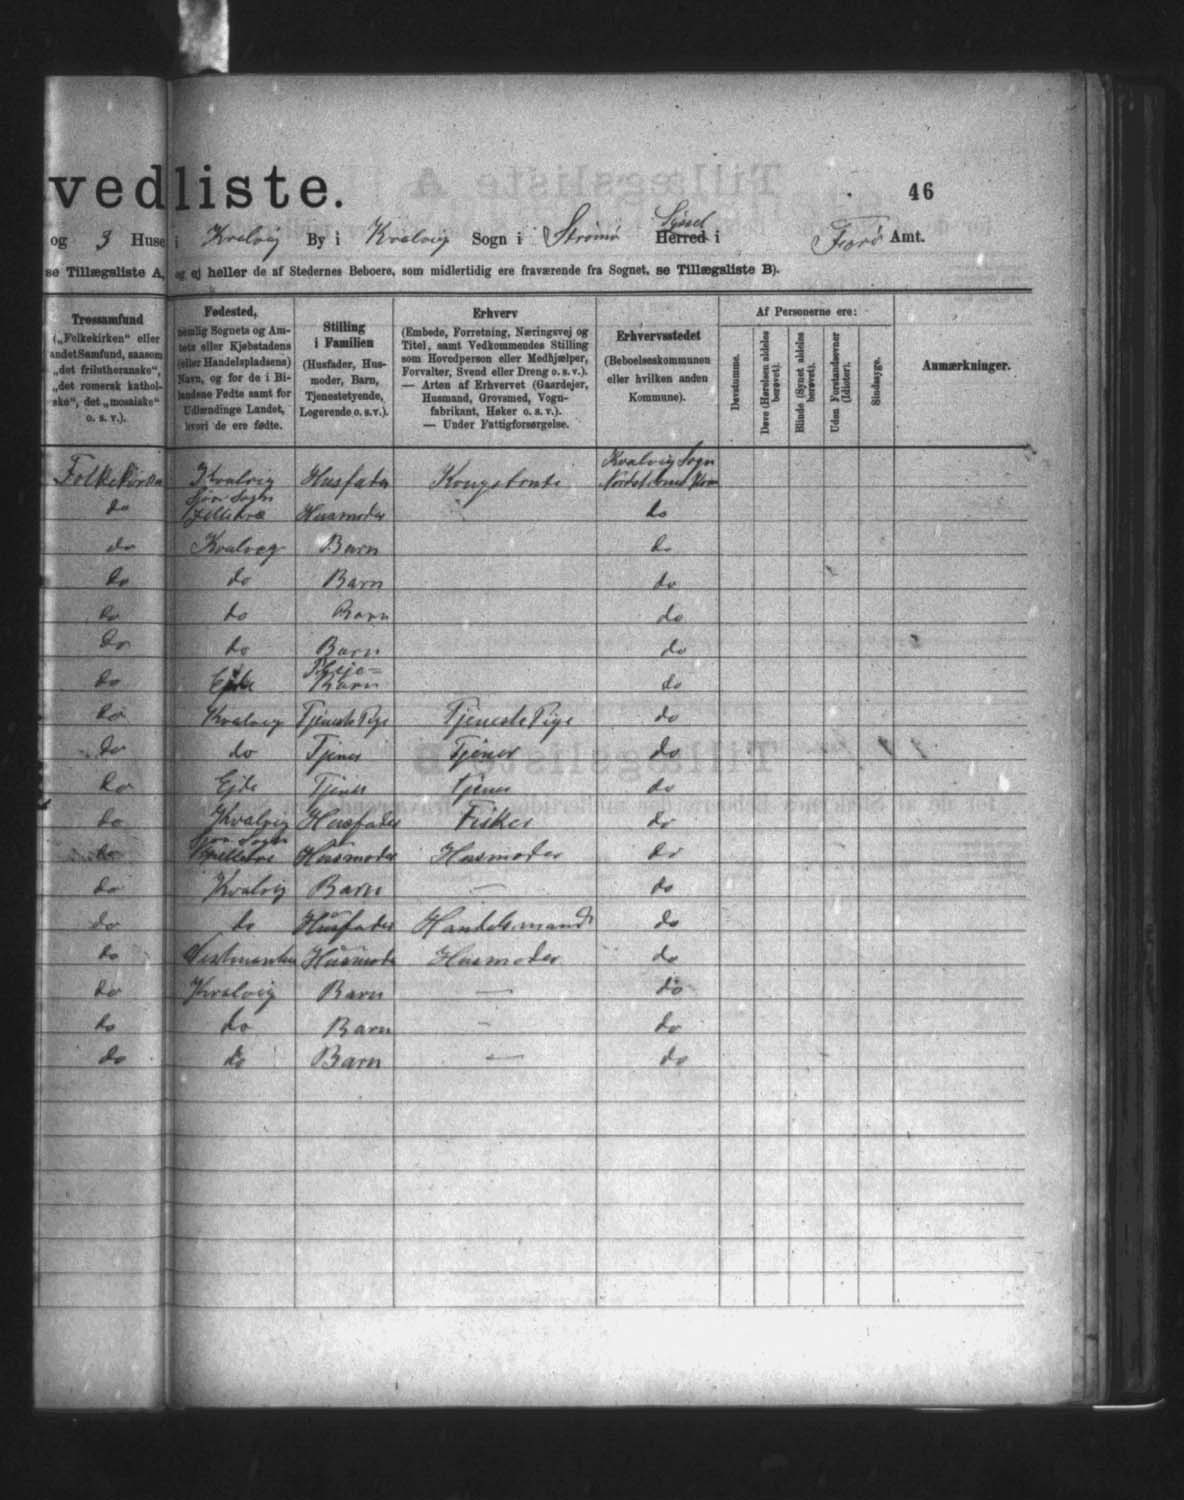 vedliste.
46
og 3 Huse i Kvalvig By i Kvalvig Sogn i Strømø Herred i Færø Amt.
Syssel
se Tillægsliste A, og ej heller de af Stedernes Beboere, som midlertidig ere fraværende fra Sognet, se Tillægsliste B).
Trossamfund
(„Folkekirken“ eller
andet Samfund, saasom
„det frilutheranske“,
„det romersk kathol-
ske“, det „mosaiske“
o. s. v.).
Fødested,
nemlig Sognets og Am-
tets eller Kjøbstadens
(eller Handelspladsens)
Navn, og for de i Bi-
landene Fødte samt for
Udlændinge Landet,
hvori de ere fødte.
Stilling
i Familien
(Husfader, Hus-
moder, Barn,
Tjenestetyende,
Logerende o. s. v.).
Erhverv
(Embede, Forretning, Næringsvej og
Titel, samt Vedkommendes Stilling
som Hovedperson eller Medhjælper,
Forvalter, Svend eller Dreng o. s. v.).
— Arten af Erhvervet (Gaardejer,
Husmand, Grovsmed, Vogn-
fabrikant, Høker o. s. v.).
— Under Fattigforsørgelse.
Erhvervsstedet
(Beboelseskommunen
eller hvilken anden
Kommune).
Af Personerne ere:
Døvstumme.
Døve (Hørelsen aldeles
berøvet).
Blinde (Synet aldeles
berøvet).
Uden Forstandsevner
(Idioter).
Sindssyge.
Anmærkninger.
Folkekirken Kvalvig Husfader Kongsbonde Kvalvig Sogn
do Sogn Husmoder do
do Kvalvig Barn do
do do Barn do
do do Barn do
do do Barn do
do Ejde Pleje=Barn do
do Kvalvig Tjeneste Pige Tjeneste Pige do
do do Tjener Tjener do
do Ejde Tjener Tjener do
do Kvalvig Husfader Fisker do
do Sogn Husmoder Husmoder do
do Kvalvig Barn — do
do do Husfader Handelsmand do
do Husmoder Husmoder do
do Kvalvig Barn — do
do do Barn — do
do do Barn — do